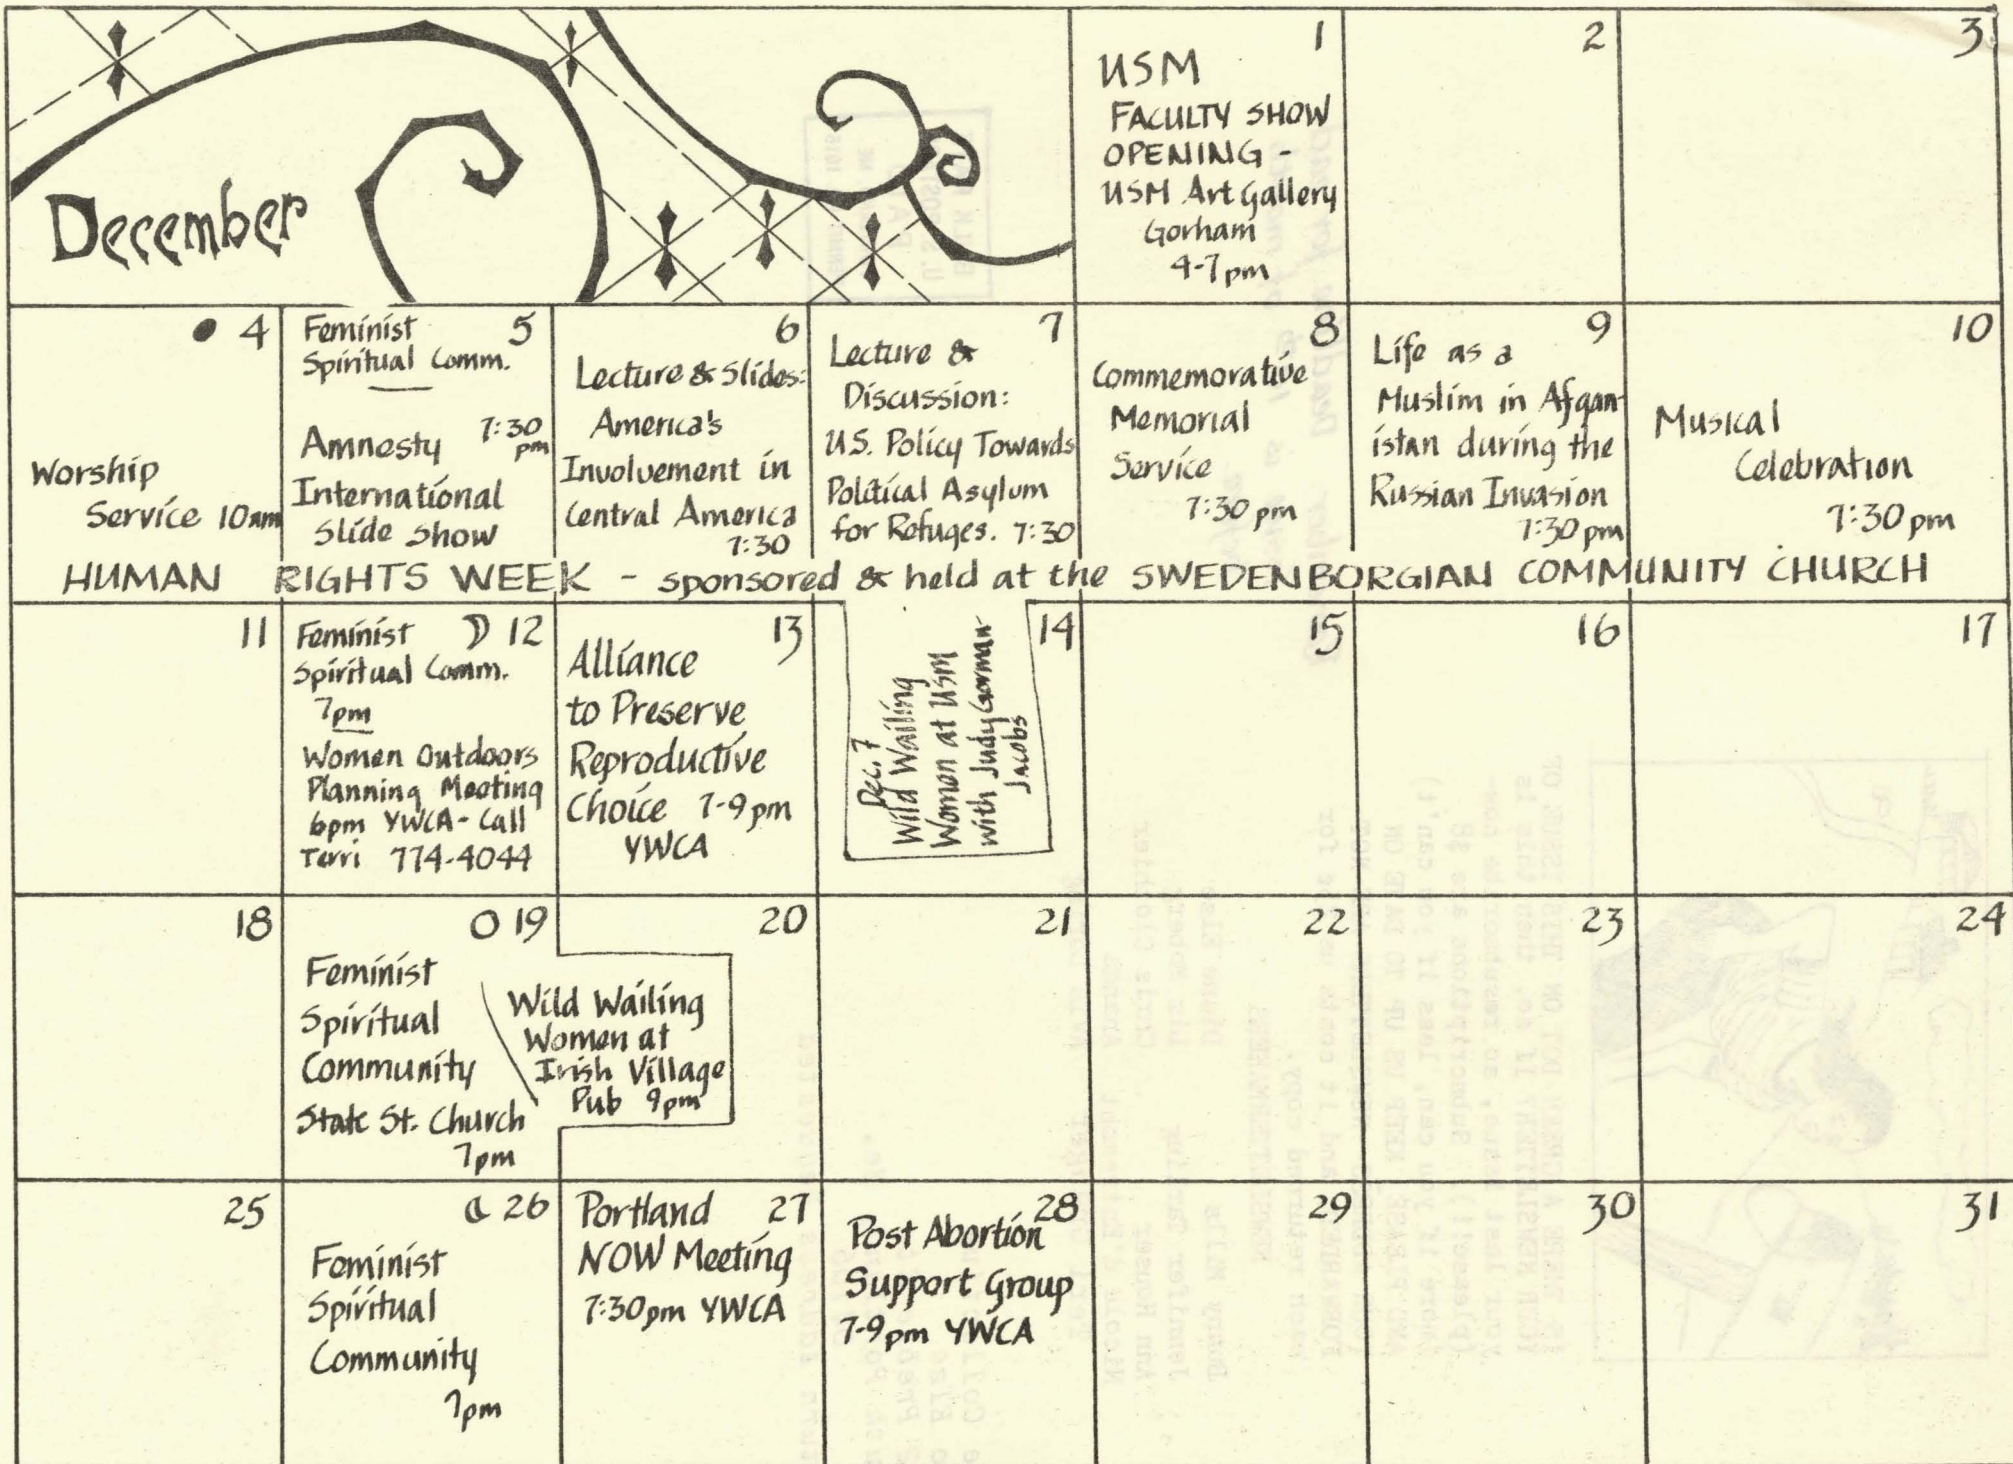 December
1
USM
FACULTY SHOW
OPENING -
USM Art Gallery
Gorham
4-7pm
2
3
4
Worship
Service 10am
5
Feminist
Spiritual Comm.
Amnesty 7:30
pm
International
Slide Show
6
Lecture & Slides:
America's
Involvement in
Central America
7:30
7
Lecture &
Discussion:
U.S. Policy Towards
Political Asylum
for Refuges. 7:30
8
Commemorative
Memorial
Service
7:30 pm
9
Life as a
Muslim in Afgan-
istan during the
Russian Invasion
7:30 pm
10
Musical
Celebration
7:30 pm
HUMAN RIGHTS WEEK - sponsored & held at the SWEDENBORGIAN COMMUNITY CHURCH
11
12
Feminist
Spiritual Comm.
7pm
Women Outdoors
Planning Meeting
6pm YWCA - Call
Terri 774-4044
13
Alliance
to Preserve
Reproductive
Choice 7-9pm
YWCA
14
Dec. 7
Wild Wailing
Women at USM
with Judy Gorman-
Jacobs
15
16
17
18
19
Feminist
Spiritual
Community
State St. Church
7pm
Wild Wailing
Women at
Irish Village
Pub 9pm
20
21
22
23
24
25
26
Feminist
Spiritual
Community
7pm
27
Portland
NOW Meeting
7:30pm YWCA
28
Post Abortion
Support Group
7-9pm YWCA
29
30
31